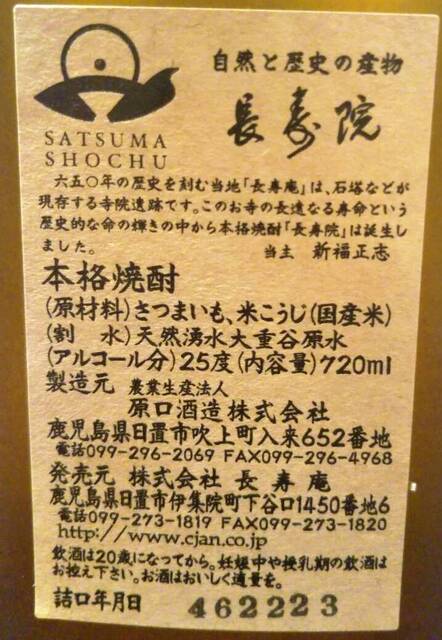 SATSUMA
SHOCHU
自然と歴史の産物
長寿院
六五〇年の歴史を刻む当地「長寿庵」は、石塔などが
現存する寺院遺跡です。このお寺の長遠なる寿命という
歴史的な命の輝きの中から本格焼酎「長寿院」は誕生し
ました。 当主 新福正志
本格焼酎
(原材料)さつまいも、米こうじ(国産米)
(割 水)天然湧水大重谷原水
(アルコール分)25度(内容量)720ml
製造元 農業生産法人
原口酒造株式会社
鹿児島県日置市吹上町入来652番地
電話099-296-2069 FAX099-296-4968
発売元 株式会社 長寿庵
鹿児島県日置市伊集院町下谷口1450番地6
電話099-273-1819 FAX099-273-1820
http://www.cjan.co.jp
飲酒は20歳になってから。妊娠中や授乳期の飲酒は
お控え下さい。お酒はおいしく適量を。
詰口年月日 462223